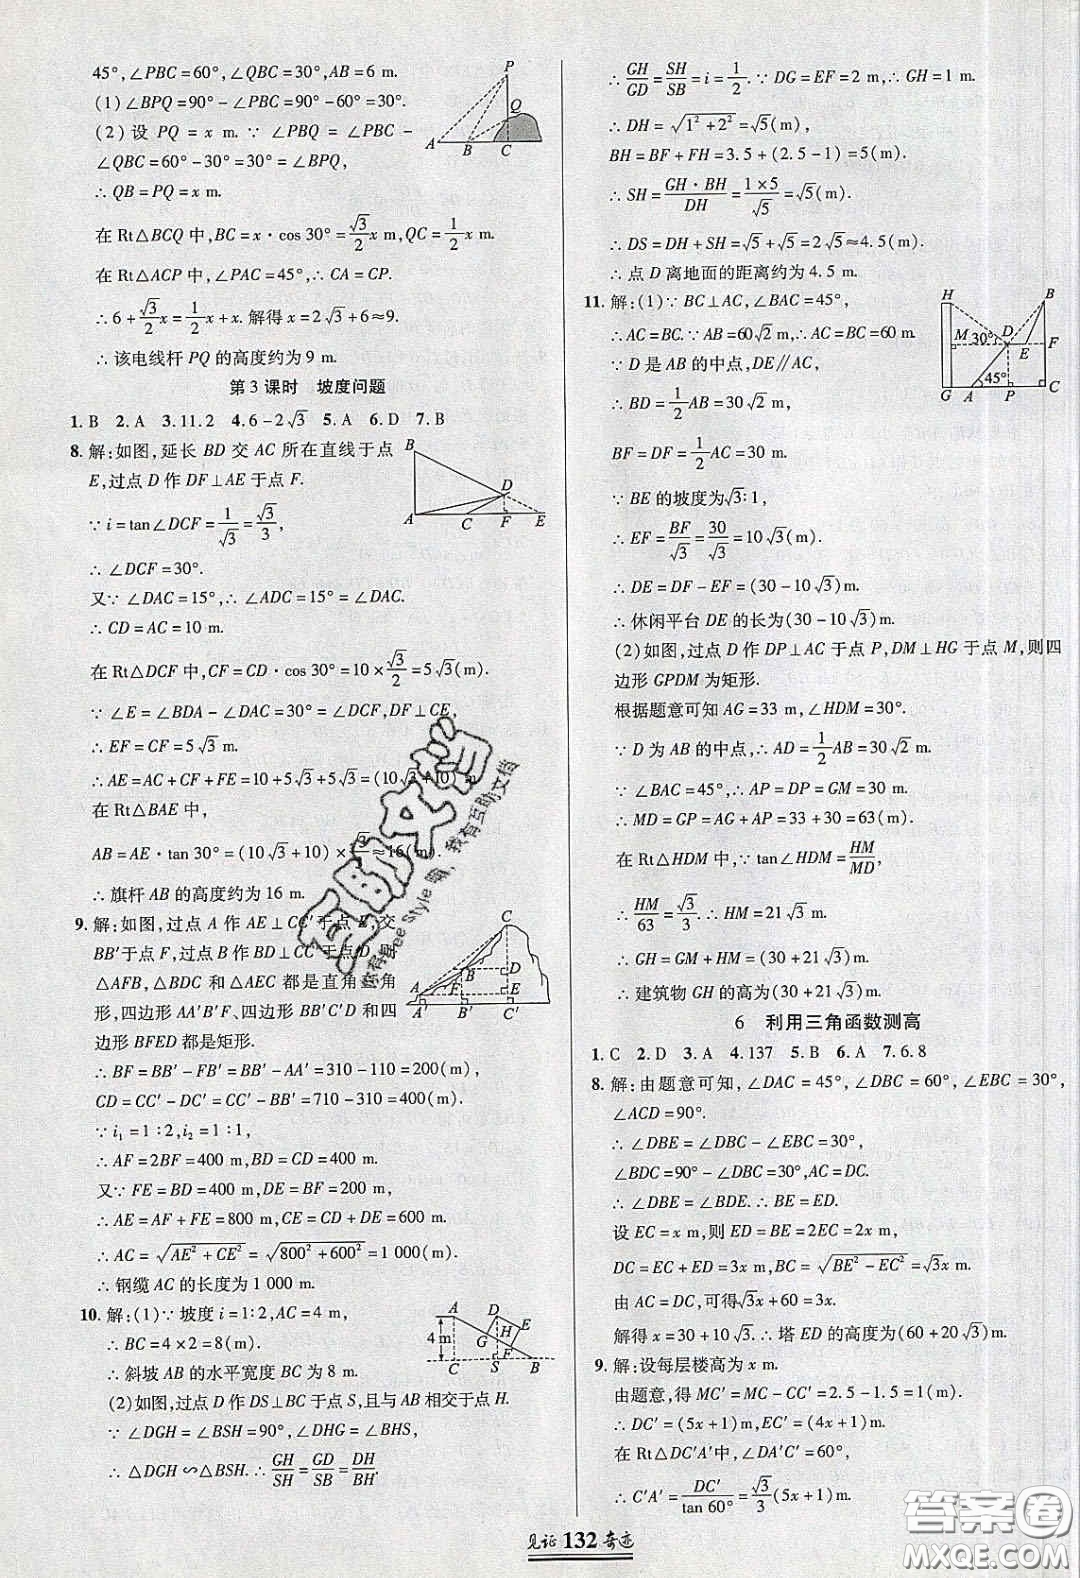 45°,∠PBC=60°,∠QBC=30°,AB=6 m.
(1)∠BPQ=90°-∠PBC=90°-60°=30°.
(2)设 PQ=x m.∵∠PBQ=∠PBC-
∠QBC=60°-30°=30°=∠BPQ,
∴QB=PQ=x m.
在 Rt△BCQ 中,BC=x·cos 30°=√3/2 x m,QC=1/2 x m.
在 Rt△ACP 中,∠PAC=45°,∴CA=CP.
∴6+√3/2 x=1/2 x+x.解得 x=2√3+6≈9.
∴该电线杆 PQ 的高度约为 9 m.
P
Q
A B C
第 3 课时 坡度问题
1. B 2. A 3. 11.2 4. 6-2√3 5. A 6. D 7. B
8. 解:如图,延长 BD 交 AC 所在直线于点
E,过点 D 作 DF⊥AE 于点 F.
∵i=tan∠DCF=1/√3=√3/3,
∴∠DCF=30°.
又∵∠DAC=15°,∴∠ADC=15°=∠DAC.
∴CD=AC=10 m.
B
D
A C F E
在 Rt△DCF 中,CF=CD·cos 30°=10×√3/2=5√3(m).
∵∠E=∠BDA-∠DAC=30°=∠DCF,DF⊥CE,
∴EF=CF=5√3 m.
∴AE=AC+CF+FE=10+5√3+5√3=(10√3+10) m
在 Rt△BAE 中,
AB=AE·tan 30°=(10√3+10)×√3/3≈16(m).
∴旗杆 AB 的高度约为 16 m.
9. 解:如图,过点 A 作 AE⊥CC′于点 E,交
BB′于点 F,过点 B 作 BD⊥CC′于点 D,则
△AFB,△BDC 和△AEC 都是直角三角
形,四边形 AA′B′F、四边形 BB′C′D 和四
边形 BFED 都是矩形.
C
B D
A F E
A′ B′ C′
∴BF=BB′-FB′=BB′-AA′=310-110=200(m).
CD=CC′-DC′=CC′-BB′=710-310=400(m).
∵i₁=1∶2,i₂=1∶1,
∴AF=2BF=400 m,BD=CD=400 m.
又∵FE=BD=400 m,DE=BF=200 m,
∴AE=AF+FE=800 m,CE=CD+DE=600 m.
∴AC=√(AE²+CE²)=√(800²+600²)=1 000(m).
∴钢缆 AC 的长度为 1 000 m.
10. 解:(1)∵坡度 i=1∶2,AC=4 m,
∴BC=4×2=8(m).
∴斜坡 AB 的水平宽度 BC 为 8 m.
A D E
4 m G H F
C S B
(2)如图,过点 D 作 DS⊥BC 于点 S,且与 AB 相交于点 H.
∵∠DGH=∠BSH=90°,∠DHG=∠BHS,
∴△DGH∽△BSH.∴GH/SH=GD/SB=DH/BH.
∴GH/GD=SH/SB=i=1/2.∵DG=EF=2 m,∴GH=1 m.
∴DH=√(1²+2²)=√5(m),
BH=BF+FH=3.5+(2.5-1)=5(m).
∴SH=GH·BH/DH=1×5/√5=√5(m).
∴DS=DH+SH=√5+√5=2√5≈4.5(m).
∴点 D 离地面的距离约为 4.5 m.
11. 解:(1)∵BC⊥AC,∠BAC=45°,
∴AC=BC.∵AB=60√2 m,∴AC=BC=60 m.
∵D 是 AB 的中点,DE∥AC,
∴BD=1/2 AB=30√2 m,
BF=DF=1/2 AC=30 m.
H B
M 30° D E F
45°
G A P C
∵BE 的坡度为√3∶1,
∴EF=BF/√3=30/√3=10√3(m).
∴DE=DF-EF=(30-10√3)m.
∴休闲平台 DE 的长为(30-10√3)m.
(2)如图,过点 D 作 DP⊥AC 于点 P,DM⊥HG 于点 M,则四
边形 GPDM 为矩形.
根据题意可知 AG=33 m,∠HDM=30°.
∵D 为 AB 的中点,∴AD=1/2 AB=30√2 m.
∵∠BAC=45°,∴AP=DP=GM=30 m.
∴MD=GP=AG+AP=33+30=63(m).
在 Rt△HDM 中,∵tan∠HDM=HM/MD,
∴HM/63=√3/3.∴HM=21√3 m.
∴GH=GM+HM=(30+21√3)m.
∴建筑物 GH 的高为(30+21√3)m.
6 利用三角函数测高
1. C 2. D 3. A 4. 137 5. B 6. A 7. 6.8
8. 解:由题意可知,∠DAC=45°,∠DBC=60°,∠EBC=30°,
∠ACD=90°.
∴∠DBE=∠DBC-∠EBC=30°,
∠BDC=90°-∠DBC=30°,AC=DC.
∴∠DBE=∠BDE.∴BE=ED.
设 EC=x m,则 ED=BE=2EC=2x m,
DC=EC+ED=3x m,BC=√(BE²-EC²)=√3x m.
由 AC=DC,可得√3x+60=3x.
解得 x=30+10√3.∴塔 ED 的高度为(60+20√3)m.
9. 解:设每层楼高为 x m.
由题意,得 MC′=MC-CC′=2.5-1.5=1(m).
∴DC′=(5x+1)m,EC′=(4x+1)m.
在 Rt△DC′A′中,∠DA′C′=60°,
∴C′A′=DC′/tan 60°=√3/3(5x+1)m.
见证132奇迹
答案圈
MXQE.COM